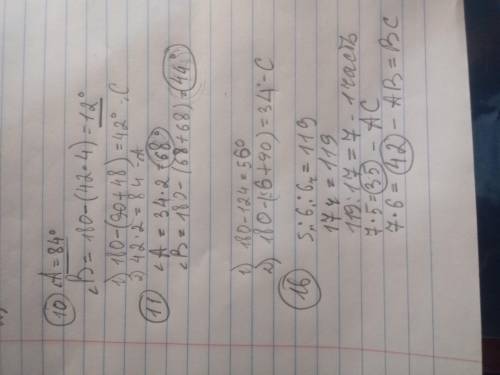 10 ∠A = 84°
∠B = 180-(42·4) = 12°
1) 180-(90+48) = 42° - C
2) 42·2 = 84 = A
11 ∠A = 34·2 = 68°
∠B = 180-(68+68) = 44°
1) 180-124 = 56°
2) 180-(56+90) = 34° - C
16 5ч:6:6ч = 119
17ч = 119
119:17 = 7 - 1 часть
7·5 = 35 - AC
7·6 = 42 - AB = BC